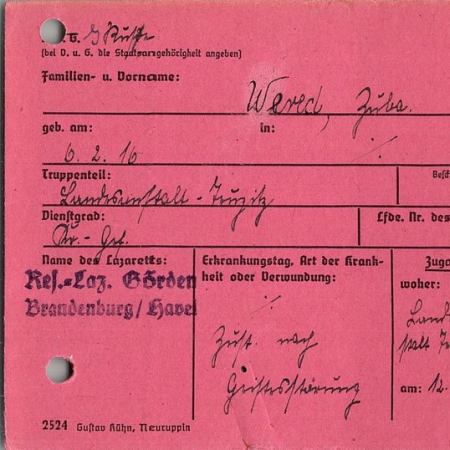 u. G. Russe
(bei D. u. G. die Staatsangehörigkeit angeben)
Familien- u. Vorname:
Wered, Zuba.
geb. am: in:
6. 2. 16 ·/·
Truppenteil: Besch
Landesanstalt - Teupitz
Dienstgrad: Lfde. Nr. des
Kr.- Gef.
Name des Lazaretts: Erkrankungstag, Art der Krank- Zuga
heit oder Verwundung: woher:
Res.-Laz. Görden
Brandenburg/Havel
·/· Land
Zust. nach stalt Te
Geistesstörung am: 12.
2524 Gustav Kühn, Neuruppin